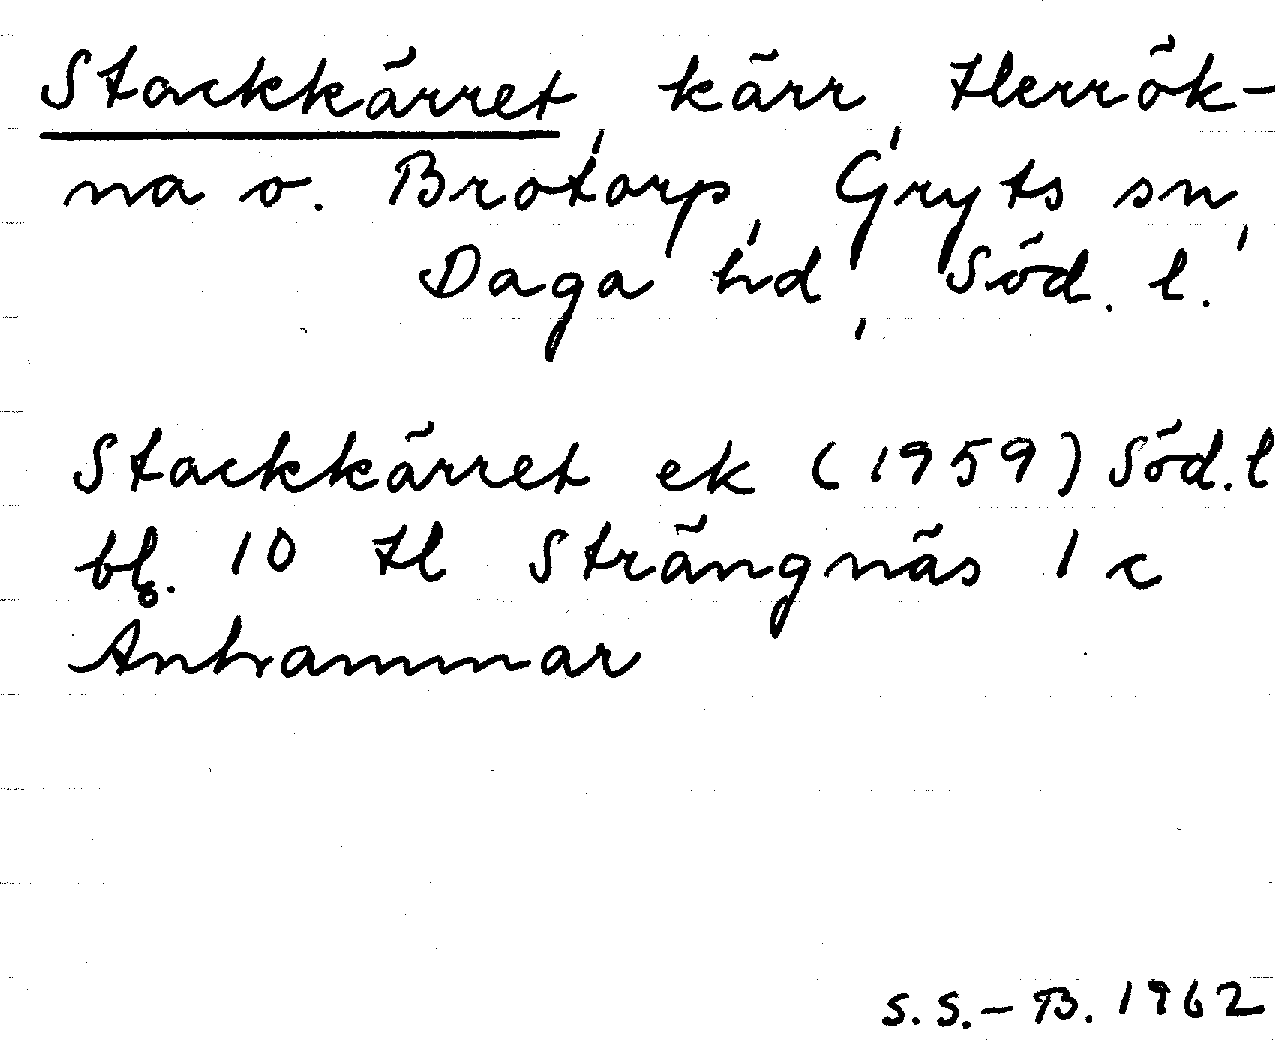 Stackkärret, kärr, Herrök-
na o. Brotorp, Gryts sn,
Daga hd, Söd. l.
Stackkärret ek (1959) Söd. l
bl. 10 H Strängnäs 1 c
Anhammar
S.S.-B. 1962